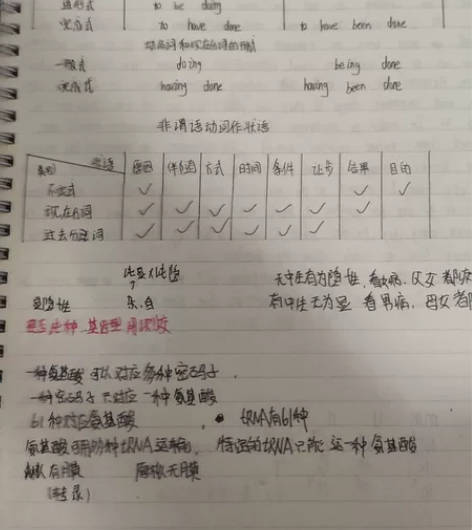 进行式 to be doing
完成式 to have done to have been done
动名词和现在分词的形式
一般式 doing being done
完成式 having done having been done
非谓语动词作状语
类别 状语 原因 伴随 方式 时间 条件 让步 结果 目的
不定式 ✓ ✓ ✓
现在分词 ✓ ✓ ✓ ✓ ✓ ✓ ✓
过去分词 ✓ ✓ ✓ ✓ ✓ ✓
无中生有为隐性,看女病,父女都病
显隐性 有中生无为显 看男病,母女都
一种氨基酸可以对应多种密码子.
一种密码子只对应一种氨基酸
61种对应氨基酸 tRNA有61种
氨基酸可用多种tRNA运输, 特定的tRNA只能运一种氨基酸
有膜 无膜
(转录)